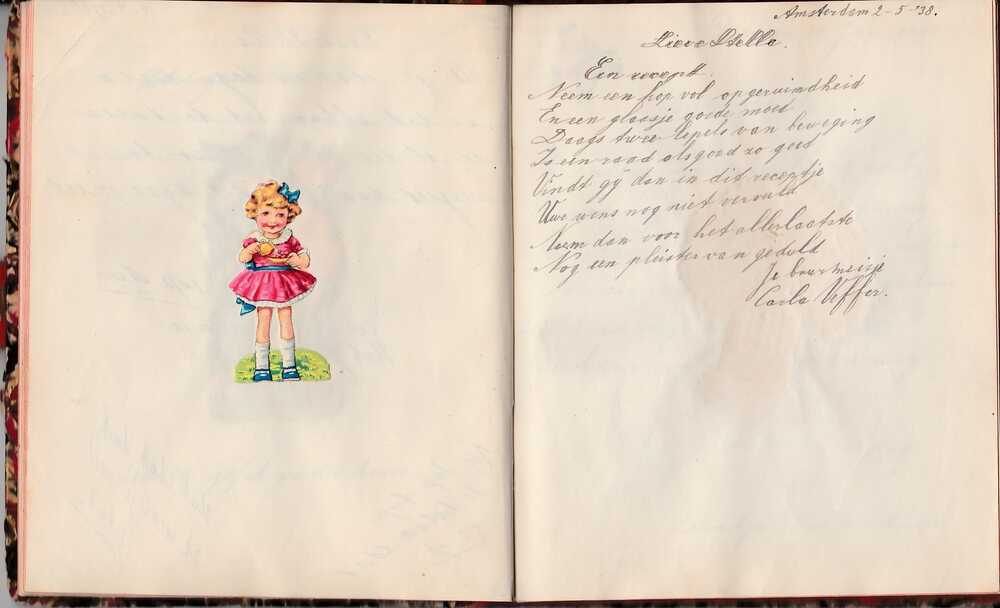 Amsterdam 2-5-'38.
Lieve Stella.
Een recept.
Neem een kop vol opgeruimdheid
En een glaasje goede moed
Daags twee lepels van beweging
Is een raad als goed zo goed
Vindt gij dan in dit receptje
Uwe wens nog niet vervuld
Neem dan voor het allerlaatste
Nog een pleister van geduld
Je buurmeisje
Carla Uffer.